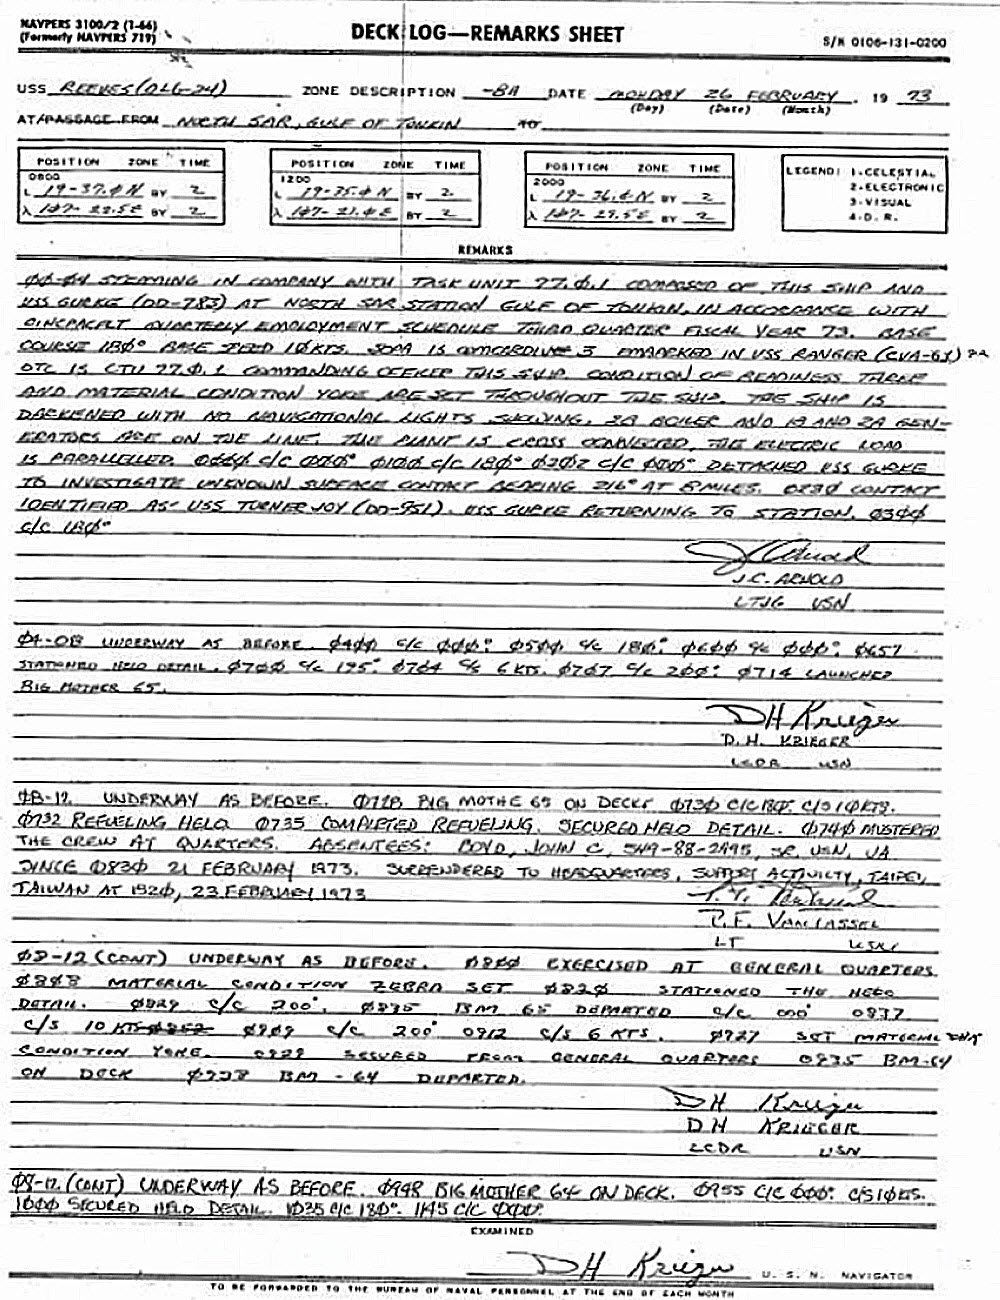 NAVPERS 3100/2 (1-66)
(Formerly NAVPERS 719)
DECK LOG—REMARKS SHEET
S/N 0106-131-0200
USS REEVES (DLG-24) ZONE DESCRIPTION -8H DATE MONDAY 26 FEBRUARY, 19 73
(Day) (Date) (Month)
AT/PASSAGE FROM NORTH SAR, GULF OF TONKIN TO
POSITION ZONE TIME
0800
L 19-37.0 N BY 2
λ 107-22.5E BY 2
POSITION ZONE TIME
1200
L 19-35.0 N BY 2
λ 107-21.0 E BY 2
POSITION ZONE TIME
2000
L 19-36.0 N BY 2
λ 107-27.5E BY 2
LEGEND: 1-CELESTIAL
2-ELECTRONIC
3-VISUAL
4-D. R.
REMARKS
00-04 STEAMING IN COMPANY WITH TASK UNIT 77.0.1 COMPOSED OF THIS SHIP AND
USS GURKE (DD-783) AT NORTH SAR STATION GULF OF TONKIN, IN ACCORDANCE WITH
CINCPACFLT QUARTERLY EMPLOYMENT SCHEDULE THIRD QUARTER FISCAL YEAR 73. BASE
COURSE 180° BASE SPEED 10 KTS. SOPA IS COMCORDIV 3 EMBARKED IN USS RANGER (CVA-61)
OTC IS CTU 77.0.1 COMMANDING OFFICER THIS SHIP. CONDITION OF READINESS THREE
AND MATERIAL CONDITION YOKE ARE SET THROUGHOUT THE SHIP. THE SHIP IS
DARKENED WITH NO NAVIGATIONAL LIGHTS SHOWING. 2B BOILER AND 1B AND 2A GEN-
ERATORS ARE ON THE LINE. THE PLANT IS CROSS CONNECTED, THE ELECTRIC LOAD
IS PARALLELED. 0000 C/C 000° 0100 C/C 180° 0202 C/C 000° DETACHED USS GURKE
TO INVESTIGATE UNKNOWN SURFACE CONTACT BEARING 216° AT 8 MILES. 0230 CONTACT
IDENTIFIED AS USS TURNER JOY (DD-951). USS GURKE RETURNING TO STATION. 0300
C/C 180°
J.C. ARNOLD
LTJG USN
04-08 UNDERWAY AS BEFORE. 0400 C/C 000° 0500 C/C 180° 0600 C/C 000° 0657
STATIONED HELO DETAIL. 0700 C/C 195° 0704 C/S 6 KTS. 0707 C/C 200° 0714 LAUNCHED
BIG MOTHER 65.
DH Krieger
D. H. KRIEGER
LCDR USN
08-12 UNDERWAY AS BEFORE. 0728 BIG MOTHE 65 ON DECK. 0730 C/C 180° C/S 10 KTS.
0732 REFUELING HELO. 0735 COMPLETED REFUELING. SECURED HELO DETAIL. 0740 MUSTERED
THE CREW AT QUARTERS. ABSENTEES: BOYD, JOHN C, USN, UA
SINCE 0830 21 FEBRUARY 1973. SURRENDERED TO HEADQUARTERS, SUPPORT ACTIVILTY, TAIPEI,
TAIWAN AT 1520, 23 FEBRUARY 1973
LT USN
08-12 (CONT) UNDERWAY AS BEFORE. 0800 EXERCISED AT GENERAL QUARTERS.
0808 MATERIAL CONDITION ZEBRA SET 0820 STATIONED THE HELO
DETAIL. 0829 C/C 200°. 0835 BM 65 DEPARTED C/C 000° 0837
C/S 10 KTS 0909 C/C 200° 0912 C/S 6 KTS. 0927 SET MATERIAL DHK
CONDITION YOKE. 0928 SECURED FROM GENERAL QUARTERS 0935 BM-64
ON DECK 0938 BM-64 DEPARTED.
DH Krieger
D H KRIEGER
LCDR USN
08-12 (CONT) UNDERWAY AS BEFORE. 0948 BIG MOTHER 64 ON DECK. 0955 C/C 000° C/S 10 KTS.
1000 SECURED HELO DETAIL. 1035 C/C 180°. 1145 C/C 000°.
EXAMINED
DH Krieger U. S. N. NAVIGATOR
TO BE FORWARDED TO THE BUREAU OF NAVAL PERSONNEL AT THE END OF EACH MONTH